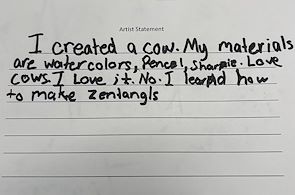 Artist Statement
I created a cow. My materials
are watercolors, Pencel, Sharpie. Love
cows. I Love it. No. I learnd how
to make zentangls